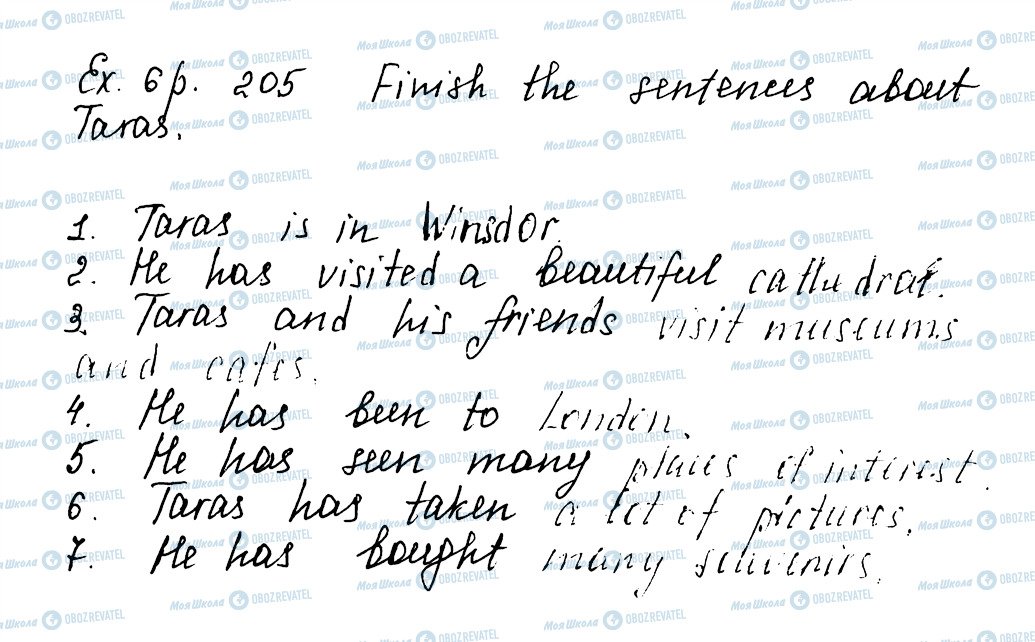 Ex. 6 p. 205 Finish the sentences about
Taras.
1. Taras is in Winsdor.
2. He has visited a beautiful cathedral.
3. Taras and his friends visit museums
and cafes.
4. He has been to London.
5. He has seen many places of interest.
6. Taras has taken a lot of pictures.
7. He has bought many souvenirs.
МояШкола OBOZREVATEL